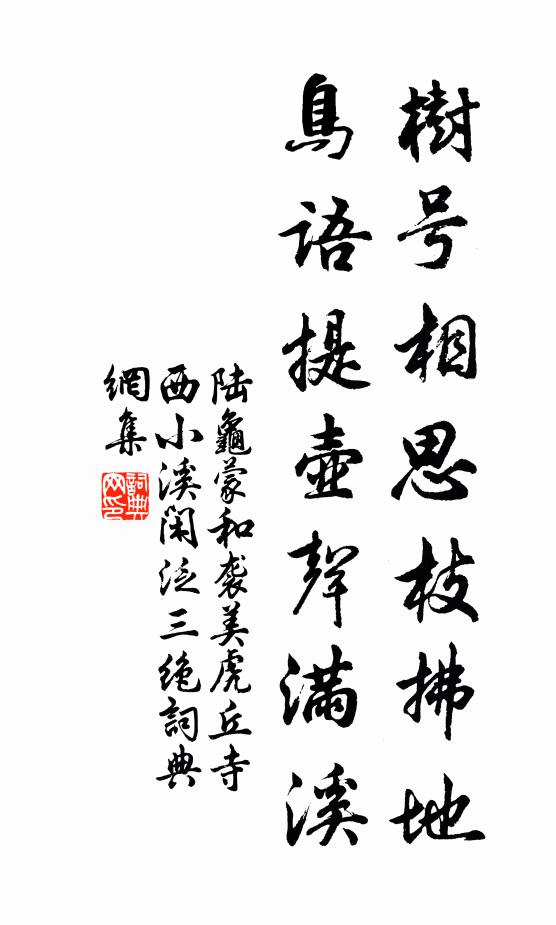 樹号相思枝拂地
鳥語提壺聲滿溪
陆龜蒙和袭美虎丘寺
西小溪闲泛三绝詞典
網集
詞典
网印